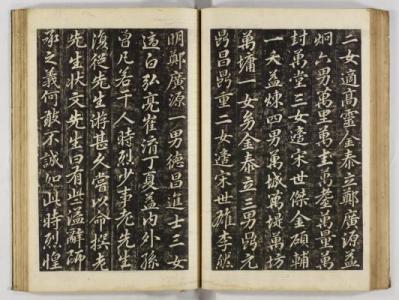 二女適高靈金泰立鄭廣源益
炯六男萬里萬圭萬奎萬量萬
封萬堂三女適宋世傑金碩輔
一夭益煉四男萬城萬堤萬坊
萬墉一女金泰立三男昂元
昂昌昂重二女適宋世雄李然
明鄭廣源一男德昌進士三女
適白弘亮崔流丁夏內外孫
曾凡若干人時烈少事老先生
後從先生游甚久嘗以命撰老
先生狀文先生曰有此溢辭師
承之義何敢不誠如此時烈惶